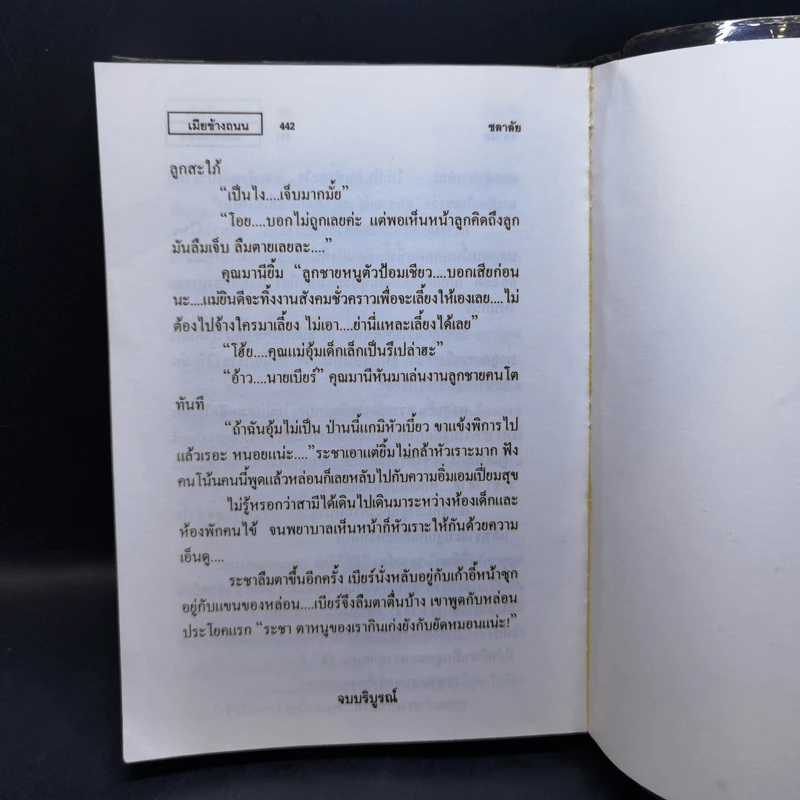 เมียข้างถนน 442 ชลาลัย
ลูกสะใภ้
“เป็นไง....เจ็บมากมั้ย”
“โอย....บอกไม่ถูกเลยค่ะ แต่พอเห็นหน้าลูกคิดถึงลูก
มันลืมเจ็บ ลืมตายเลยละ....”
คุณมานียิ้ม “ลูกชายหนูตัวป้อมเชียว....บอกเสียก่อน
นะ....แม่ยินดีจะทิ้งงานสังคมชั่วคราวเพื่อจะเลี้ยงให้เองเลย....ไม่
ต้องไปจ้างใครมาเลี้ยง ไม่เอา....ย่านี่แหละเลี้ยงได้เลย”
“โฮ้ย....คุณแม่อุ้มเด็กเล็กเป็นรึเปล่าฮะ”
“อ้าว....นายเบียร์” คุณมานีหันมาเล่นงานลูกชายคนโต
ทันที
“ถ้าฉันอุ้มไม่เป็น ป่านนี้แกมิหัวเบี้ยว ขาแข้งพิการไป
แล้วเรอะ หนอยแน่ะ....”ระชาเอาแต่ยิ้มไม่กล้าหัวเราะมาก ฟัง
คนโน้นคนนี้พูดแล้วหล่อนก็เลยหลับไปกับความอิ่มเอมเปี่ยมสุข
ไม่รู้หรอกว่าสามีได้เดินไปเดินมาระหว่างห้องเด็กและ
ห้องพักคนไข้ จนพยาบาลเห็นหน้าก็หัวเราะให้กันด้วยความ
เอ็นดู....
ระชาลืมตาขึ้นอีกครั้ง เบียร์นั่งหลับอยู่กับเก้าอี้หน้าซุก
อยู่กับแขนของหล่อน....เบียร์จึงลืมตาตื่นบ้าง เขาพูดกับหล่อน
ประโยคแรก “ระชา ตาหนูของเรากินเก่งยังกับยัดหมอนแน่ะ!”
จบบริบูรณ์